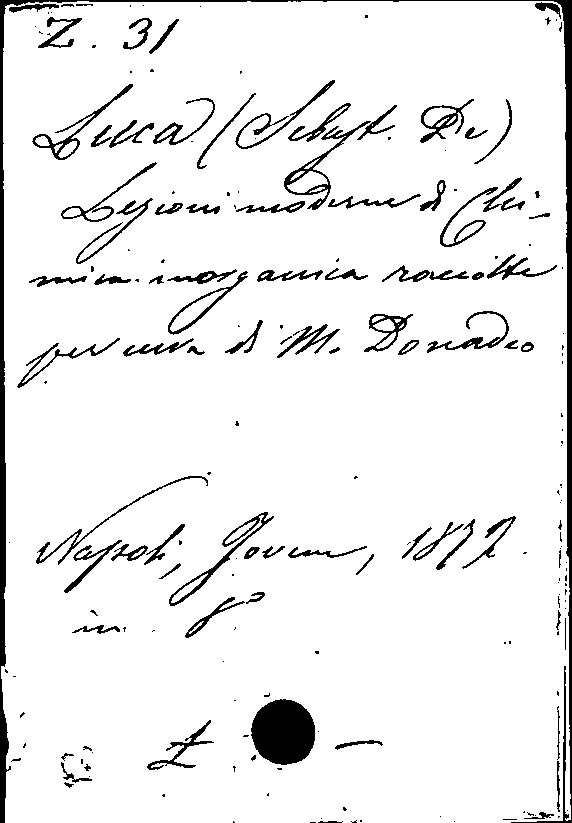 Z. 31
Lucca (Sebast. De)
Lezioni moderne di Chi-
mica inorganica raccolte
per cura di M. Donadio
Napoli, Jovene, 1872
in 8º